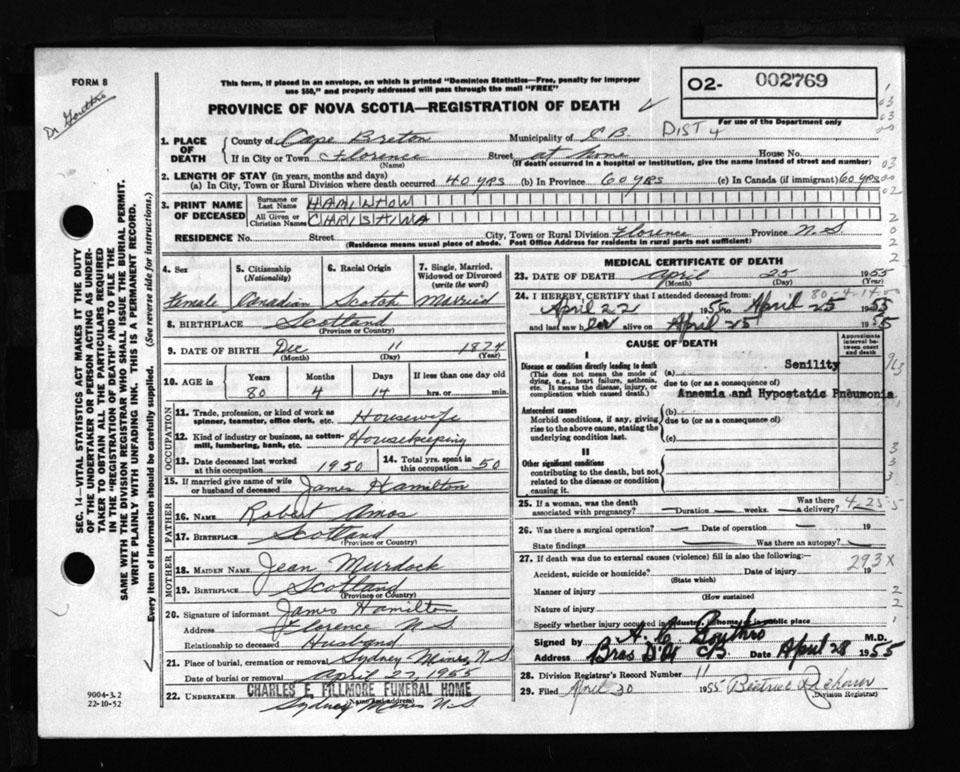 FORM 8
Dr Gouthro
This form, if placed in an envelope, on which is printed "Dominion Statistics—Free, penalty for improper
use $50," and properly addressed will pass through the mail "FREE"
PROVINCE OF NOVA SCOTIA—REGISTRATION OF DEATH
O2- 002769
For use of the Department only
DIST 4
1. PLACE OF DEATH
County of Cape Breton Municipality of C B.
If in City or Town Florence Street at home House No.
(Name) (If death occurred in a hospital or institution, give the name instead of street and number)
2. LENGTH OF STAY (in years, months and days)
(a) In City, Town or Rural Division where death occurred 40 yrs (b) In Province 60 yrs (c) In Canada (if immigrant) 60 yrs
3. PRINT NAME OF DECEASED
Surname or Last Name HAMILTON
All Given or Christian Names CHRISTINA
RESIDENCE No. Street City, Town or Rural Division Florence Province N.S.
(Residence means usual place of abode. Post Office Address for residents in rural parts not sufficient)
4. Sex Female
5. Citizenship (Nationality) Canadian
6. Racial Origin Scotch
7. Single, Married, Widowed or Divorced (write the word) Married
8. BIRTHPLACE Scotland
(Province or Country)
9. DATE OF BIRTH Dec 11 1874
(Month) (Day) (Year)
10. AGE in Years 80 Months 4 Days 14 If less than one day old hrs. or min.
OCCUPATION
11. Trade, profession, or kind of work as spinner, teamster, office clerk, etc. Housewife
12. Kind of industry or business, as cotton-mill, lumbering, bank, etc. Housekeeping
13. Date deceased last worked at this occupation 1950
14. Total yrs. spent in this occupation 50
15. If married give name of wife or husband of deceased James Hamilton
FATHER
16. NAME Robert Amos
17. BIRTHPLACE Scotland
(Province or Country)
MOTHER
18. MAIDEN NAME Jean Murdock
19. BIRTHPLACE Scotland
(Province or Country)
20. Signature of informant James Hamilton
Address Florence N.S.
Relationship to deceased Husband
21. Place of burial, cremation or removal Sydney Mines, N.S
Date of burial or removal April 27, 1955
22. UNDERTAKER CHARLES E. FILLMORE FUNERAL HOME
(Name and address)
Sydney Mines N.S
MEDICAL CERTIFICATE OF DEATH
23. DATE OF DEATH April 25 1955
(Month) (Day) (Year)
80-4-14
24. I HEREBY CERTIFY that I attended deceased from:
April 22 1955 to April 25 1955
and last saw her alive on April 25 1955
CAUSE OF DEATH
Approximate interval between onset and death
I
Disease or condition directly leading to death
(This does not mean the mode of dying, e.g., heart failure, asthenia, etc. It means the disease, injury, or complication which caused death.)
(a) Senility
due to (or as a consequence of)
Anaemia and Hypostatic Pneumonia
Antecedent causes
Morbid conditions, if any, giving rise to the above cause, stating the underlying condition last.
(b)
due to (or as a consequence of)
(c)
II
Other significant conditions
contributing to the death, but not related to the disease or condition causing it.
25. If a woman, was the death associated with pregnancy? — Duration — weeks. Was there a delivery?
4-25-5
26. Was there a surgical operation? — Date of operation — 19
State findings Was there an autopsy? —
27. If death was due to external causes (violence) fill in also the following:—
293X
Accident, suicide or homicide? Date of injury 19
(State which)
Manner of injury
(How sustained
Nature of injury
Specify whether injury occurred in industry, in home, or in public place
Signed by A. C. Gouthro M.D.
Address Bras D'Or CB Date April 28 1955
28. Division Registrar's Record Number 11
29. Filed April 30 1955 Beatrice
(Division Registrar)
SEC. 14—VITAL STATISTICS ACT MAKES IT THE DUTY
OF THE UNDERTAKER OR PERSON ACTING AS UNDER-
TAKER TO OBTAIN ALL THE PARTICULARS REQUIRED
IN THE "REGISTRATION OF DEATH" AND TO FILE THE
SAME WITH THE DIVISION REGISTRAR WHO SHALL ISSUE THE BURIAL PERMIT.
WRITE PLAINLY WITH UNFADING INK. THIS IS A PERMANENT RECORD.
Every item of information should be carefully supplied. (See reverse side for instructions.)
9004-3.2
22-10-52